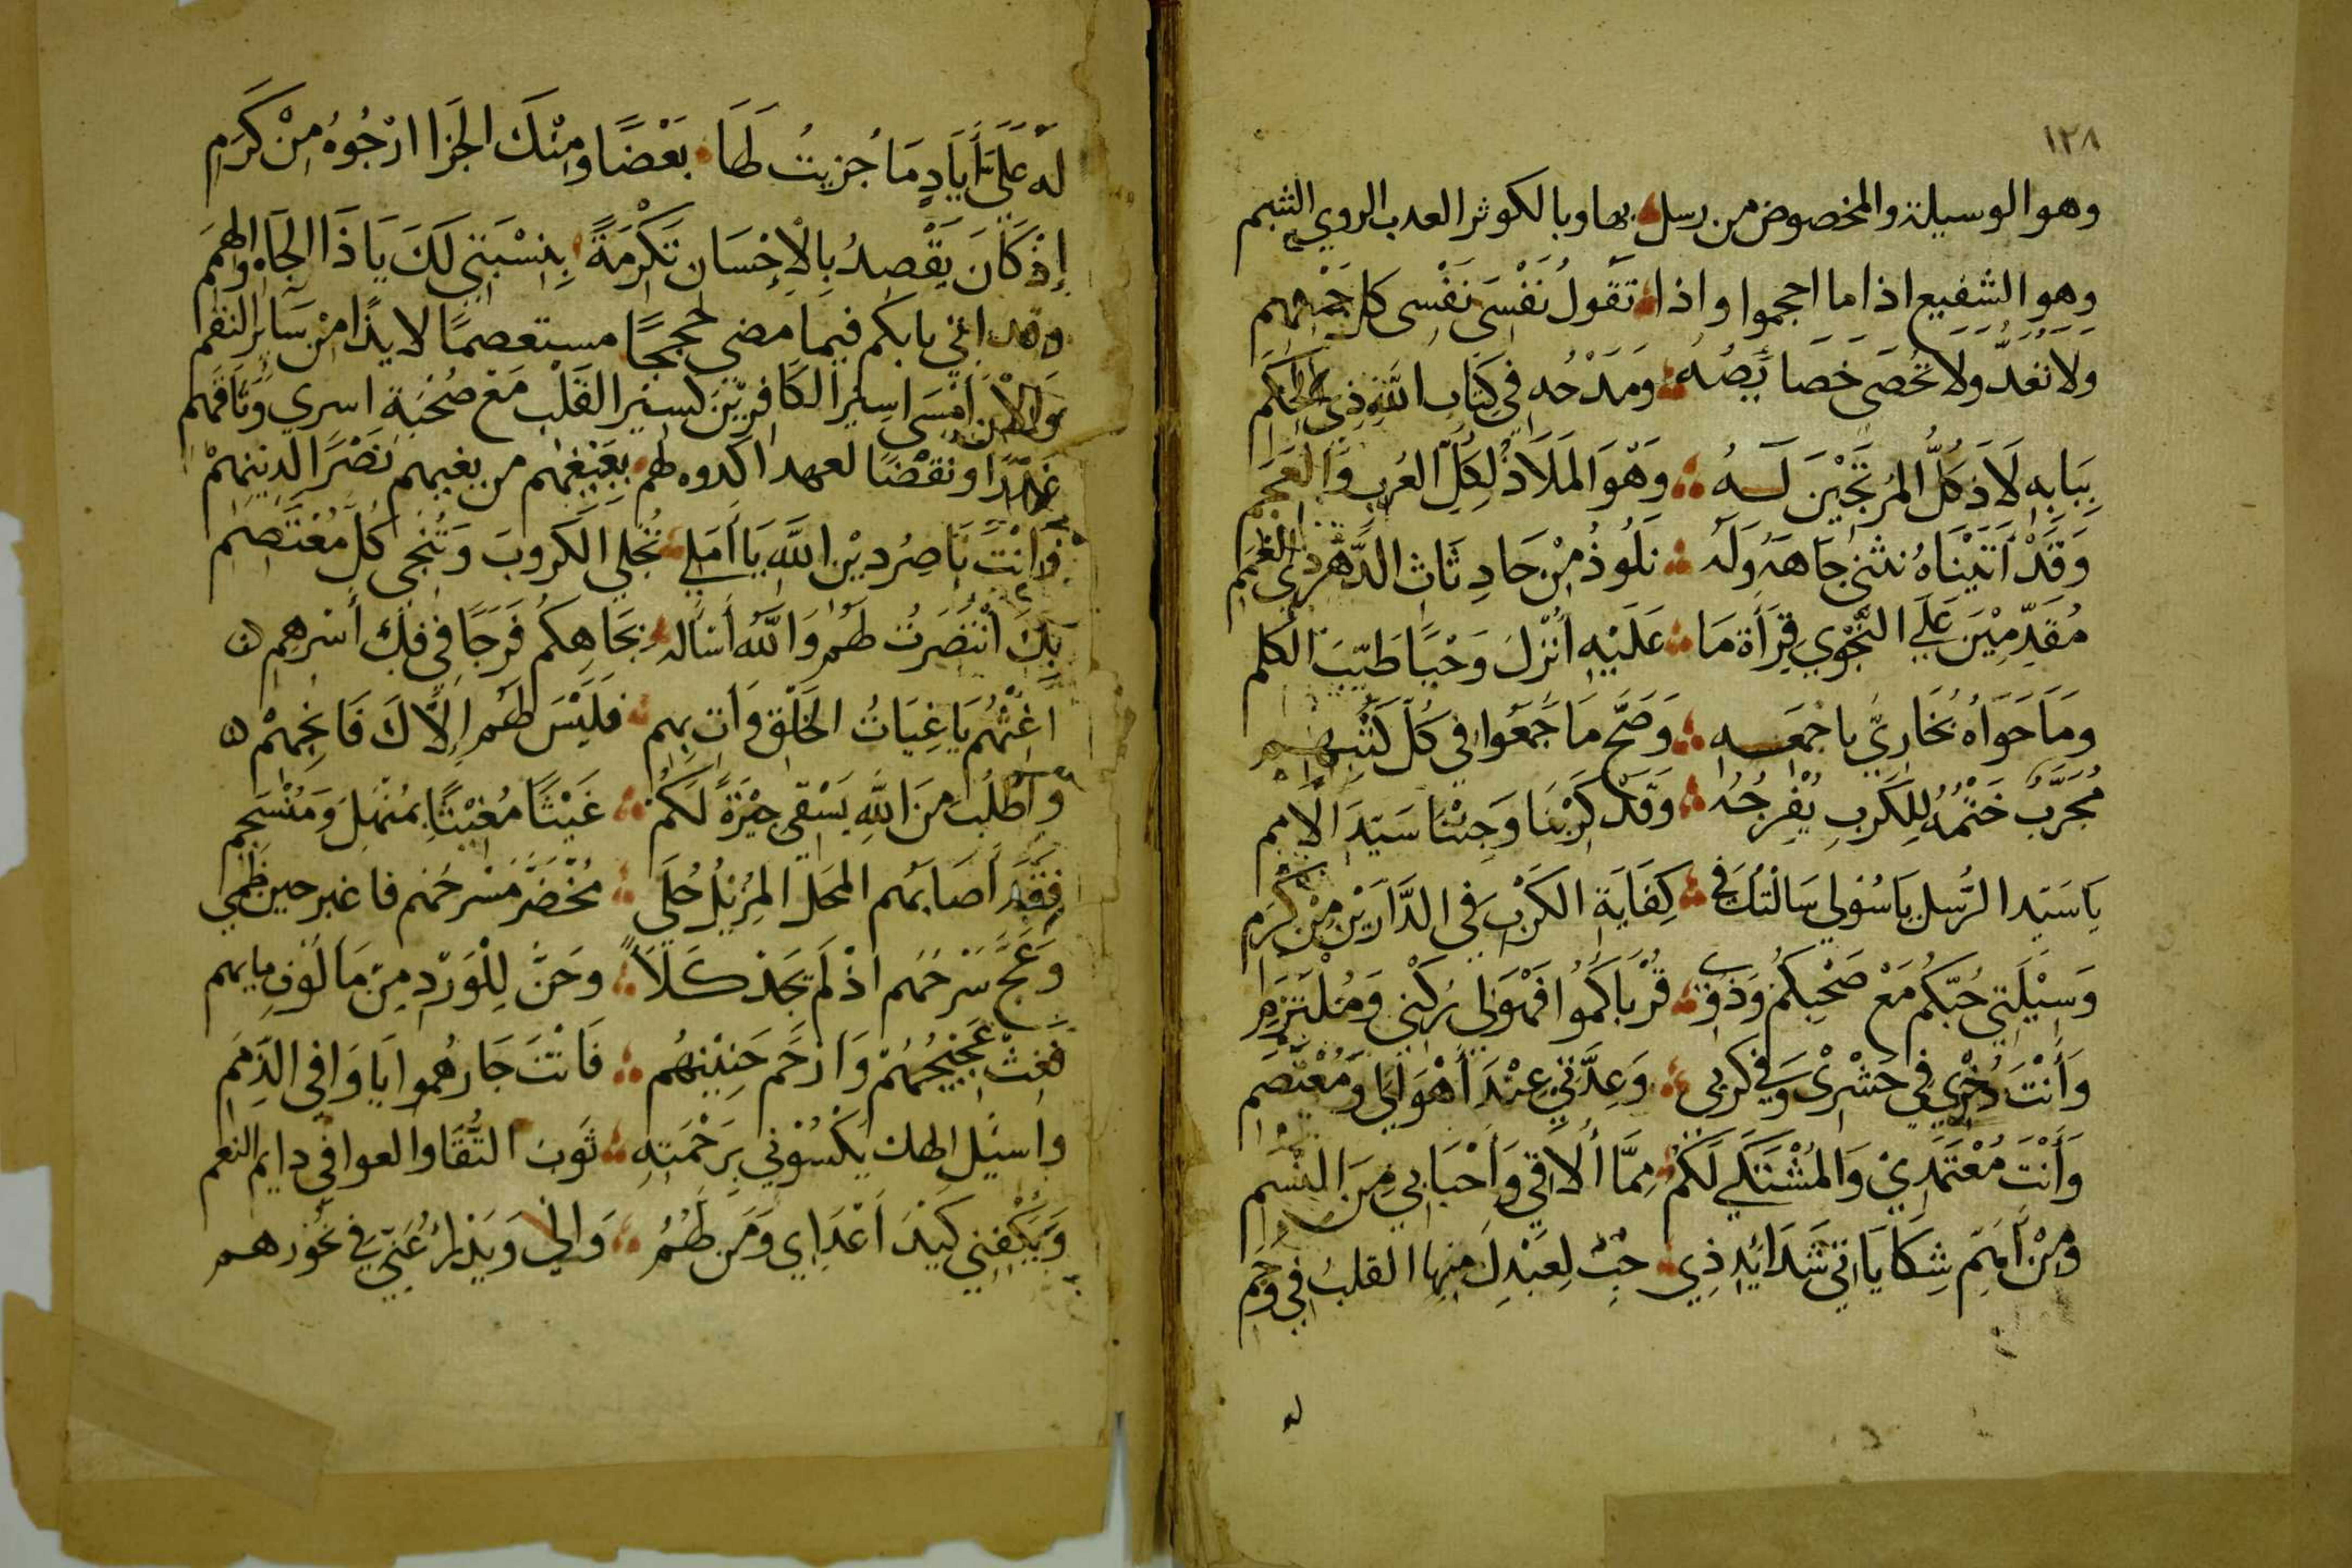 ١٢٨
وهو الوسيلة والمخصوص من رسل بها وبالكوثر العدب الروي الشبم
وهو الشفيع اذا ما احجموا واذا تَقُولُ نَفْسِى نَفْسِى كل جَمْعِهِم
ولَا تُعَدُّ ولَا تُحْصَى خَصَايِصُهُ وَمَدْحُه فِي كِتَابِ اللَّهِ ذِي الحِكَم
بِبَابِهِ لَاذَ كُلُّ المُرْتَجِيْنَ لَهُ وَهْوَ المَلَاذُ لِكُلِّ العُربِ وَالعَجَم
وَقَدْ اَتَيْنَاهُ نَنْثَنِي جَاهَهُ وَلَهُ نَلُوذُ مِنْ حَادِثَاتِ الدَّهْرِ ذِي الغُمَم
مُقَدِّمِيْنَ عَلَى النَّجْوِي قِرَأَةَ مَا عَلَيْهِ اُنْزِلَ وَحْيًا طَيِّبَ الكلم
ومَا حَوَاهُ بُخَارِيُّ باجْمَعِهِ وَصَحَّ مَا جَمَّعُوا فِي كُلِّ كُتْبِهِم
مُجَرَّبٌ خَتْمُهُ لِلكَربِ يُفْرِجُهُ وَقَدْ كُرِبْنَا وَجِئْنَا سَيِّدَ الاُمَمِ
يَا سَيِّدَ الرُّسلِ يَا سُؤلِي سَالْتُكَ فِي كِفَايَةِ الكَرْبِ فِي الدَّارَيْنِ مِنْ كَرَمِ
وَسِيْلَتِي حُبُّكُم مَعْ صَحْبِكُم وَذَوِي قُرْبَاكُمُوا فَهْوَ لِي رُكْنِي وَمُلْتَزَمِي
وَأَنْتَ ذُخْرِي فِي حَشْرِى وَفِي كَربِي وَعِدَّتِي عِنْدَ أَهْوَالِي وَمُعْتَصَم
وَأَنْتَ مُعْتَمَدِيْ وَالمُشْتَكَى لَكُم مِمَّا أُلَاقِي وَاَحْبَابِي مِنَ النِّسَمِ
وَمِنْ اَهَمِّ شِكَايَاتِي شَدَائِدِ ذِي حِبِّ لِعَبْدِكَ مِنِها القلبُ فِي وَجَم
له
لَه عَلَيَّ أَيَادٍ مَا جُزِيتُ لَهَا بَعْضًا وَمِنْكَ الجَزَا ارْجُوهُ مِنْ كَرَمِ
إِذْ كَانَ يَقْصِدُ بِالْاِحْسَانِ تَكْرِمَةً بِنِسْبَتِي لَكَ يَا ذَا الجَاهِ والهِمَم
وقد اتي بابكم فيما مضى حججًا مستعصمًا لايذًا مِنْ سَايرِ النقم
وَالْاَنَ اَمْسَى اسِيْرَ الكَافِرِيْنَ كَسِيْرَ القَلْبِ مَعْ صُحْبَةِ اسري
غَدْرًا ونَقْضًا لعهد اكدوه لهم من بغيهم نَصْرًا لدِيْنِهِمْ
فَأَنْتَ نَاصِرُ دِيْنِ اللَّهِ يَا أَمَلِي تُجْلِي الكَروبَ وَتُنْجِي كُلَّ مُعْتَصِم
بِكَ انْتَصَرْتُ لَهُم وَاللَّهَ أَسْأَلَه بِجَاهِكُم فَرَجًا فِي فَكِّ أَسْرِهِم
اغِثْهُم يَا غِيَاثُ الخَلْقِ وَأْتِ بِهِم فَلَيْسَ لَهُم إِلَّاكَ فَانْجِهِمْ
وَاطْلُبْ مِنَ اللَّهِ يَسْقِي جِيْرَةً لَكُم غَيْثًا مُغِيْثًا بِمُنْهَلٍ وَمُنْسَجِمِ
فَقَد اَصَابَهُم المَحْلُ المُزِيْلُ حُلَى مُخْضَرِّ مَسْرحُهُم فاغبر حين ظَمِي
وَعَجَّ سَرْحُهُم اذْ لَمْ يَجْد كَلَاءً وحَنَّ لِلْوَرْدِ مِنْ مَالُوفِ مايهم
فَغِثْ عَجِيْجَهُمْ وَارْحَم حَنِيْنَهُم فَانْتَ جَارُهُموا يَا وَافِي الذِّمَمِ
واسيل الهك يَكْسُوْنِي بِرَحْمَتِهِ ثَوْبَ التُّقَا والعوافي دايم النعم
وَيَكْفِنِي كَيْدَ اَعْدَايِ وَمَن لَهُمُ وَالِي وَيَدْرَأُ عَنِّي فِي نُحُورِهِم